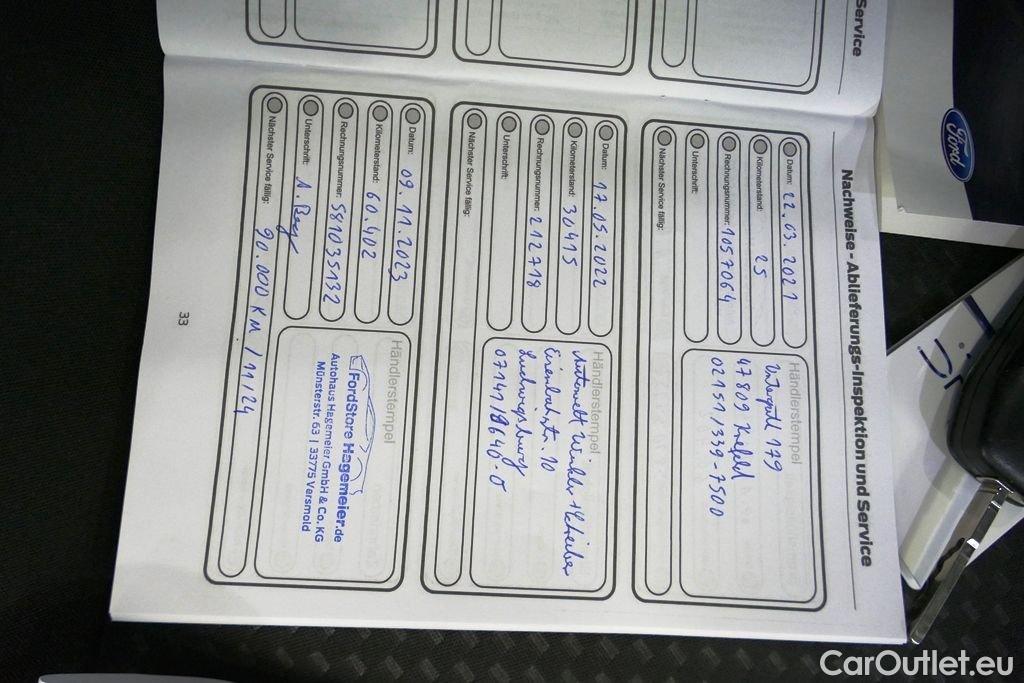 Service
Nachweise - Ablieferungs-Inspektion und Service
Datum: 22.03.2021
Kilometerstand: 25
Rechnungsnummer: 1057064
Unterschrift:
Nächster Service fällig:
Händlerstempel
Untergath 179
47809 Krefeld
02151/339-7500
Datum: 17.05.2022
Kilometerstand: 30415
Rechnungsnummer: 212718
Unterschrift:
Nächster Service fällig:
Händlerstempel
Autowelt Winkler + Schreiber
Eisenbahnstr. 10
Ludwigsburg
07141/8640-0
Datum: 09.11.2023
Kilometerstand: 60.402
Rechnungsnummer: 581035132
Unterschrift:
Nächster Service fällig: 90.000 KM / 11/24
Händlerstempel
FordStore Hagemeier.de
Autohaus Hagemeier GmbH & Co. KG
Münsterstr. 63 | 33775 Versmold
33
Ford
CarOutlet.eu